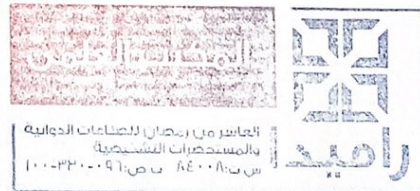 العاشر من رمضان للصناعات الدوائية
والمستحضرات التشخيصية
س.ت: ٨٤٠٠٨ ب.ض: ٠٩٦-٣٢٠-١٠٠
راميد